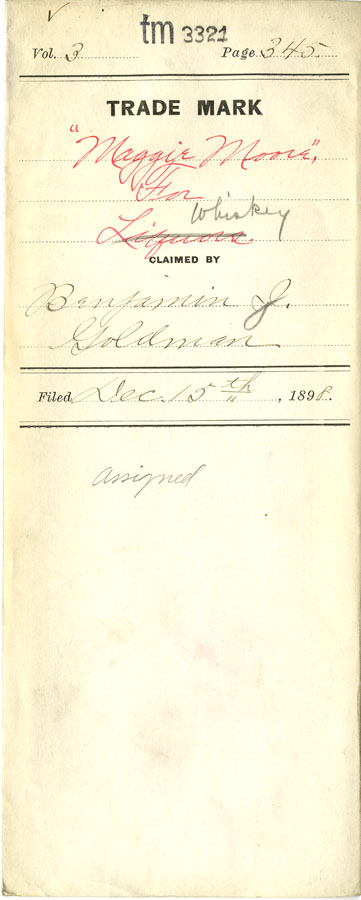 tm 3321
Vol. 3 Page 345
TRADE MARK
"Maggie Moore",
For
Whiskey
Liquors.
CLAIMED BY
Benjamin J.
Goldman
Filed Dec. 15th, 1898.
assigned